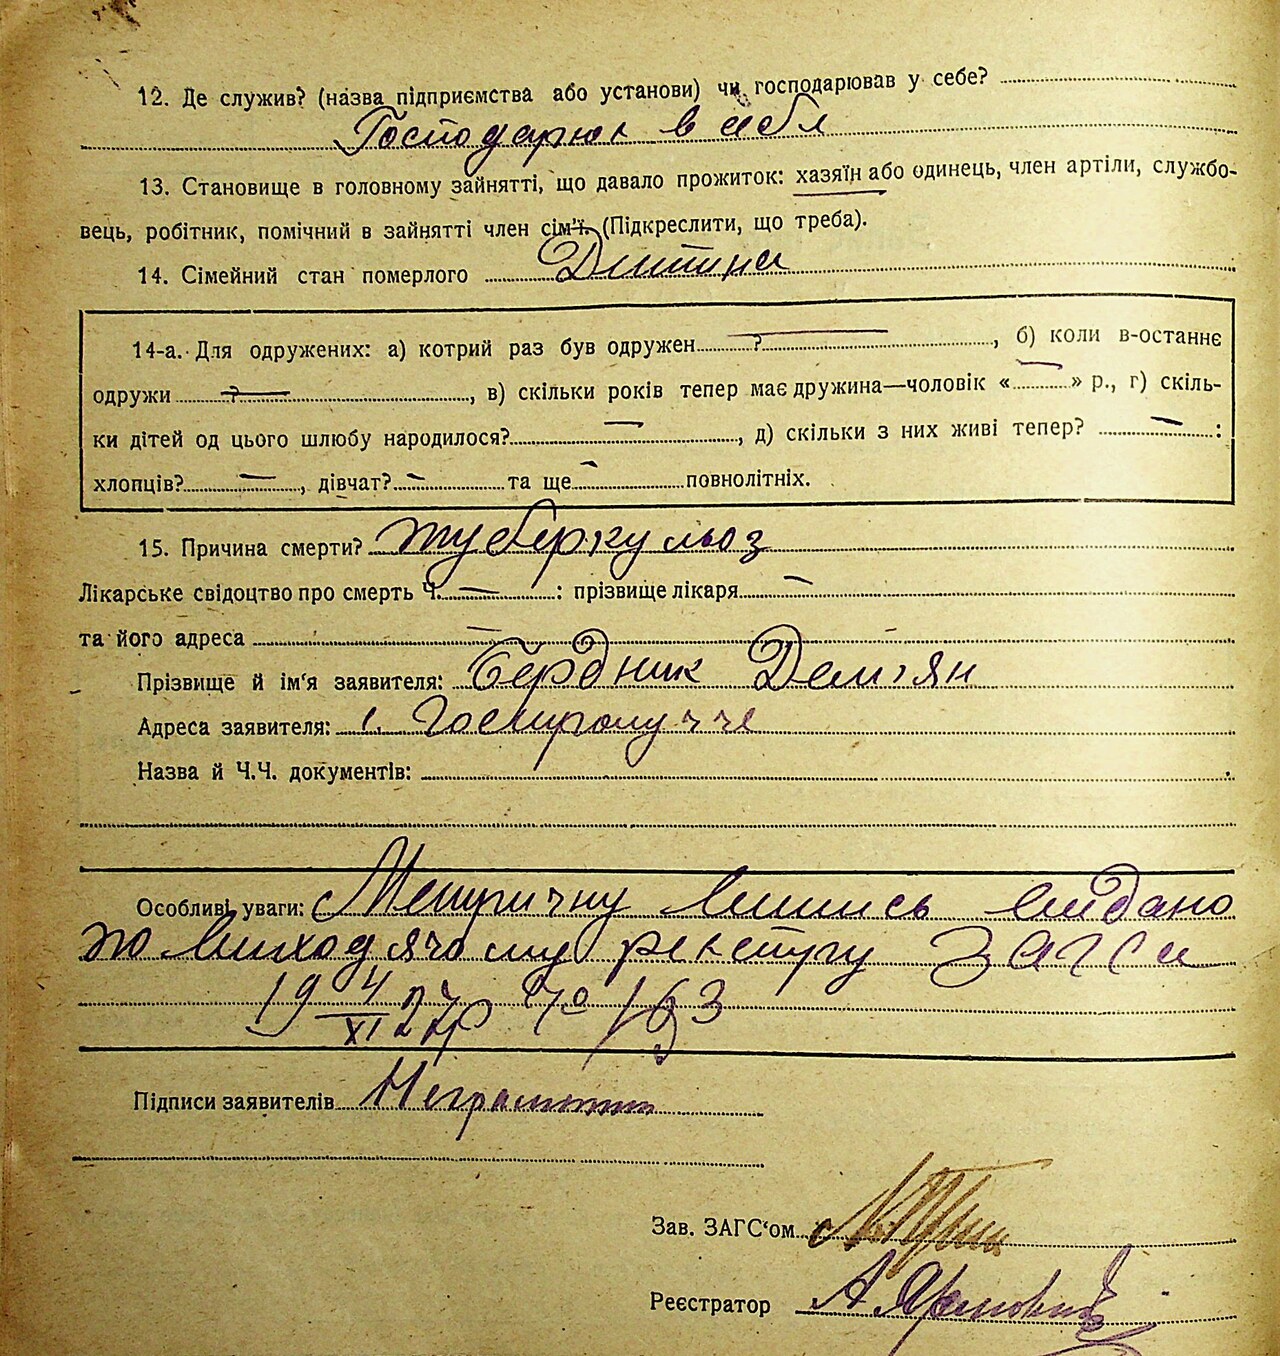 12. Де служив? (назва підприємства або установи) чи господарював у себе?
Господарює в себе
13. Становище в головному зайнятті, що давало прожиток: хазяїн або одинець, член артіли, службо-
вець, робітник, помічний в зайнятті член сім'ї. (Підкреслити, що треба).
14. Сімейний стан померлого Дитина
14-а. Для одружених: а) котрий раз був одружен ? —, б) коли в-останнє
одружи ? —, в) скільки років тепер має дружина—чоловік « — » р., г) скіль-
ки дітей од цього шлюбу народилося? —, д) скільки з них живі тепер? — :
хлопців? —, дівчат? — та ще — повнолітніх.
15. Причина смерти? туберкульоз
Лікарське свідоцтво про смерть Ч. — : прізвище лікаря —
та його адреса —
Прізвище й ім'я заявителя: Бердник Дем'ян
Адреса заявителя:
Назва й Ч.Ч. документів:
Особливі уваги: Метричну випись видано
по виходячому реєстру ЗАГСа
19 XI 27р № 163
Підписи заявителів Неграмотн
Зав. ЗАГС'ом
Реєстратор А.